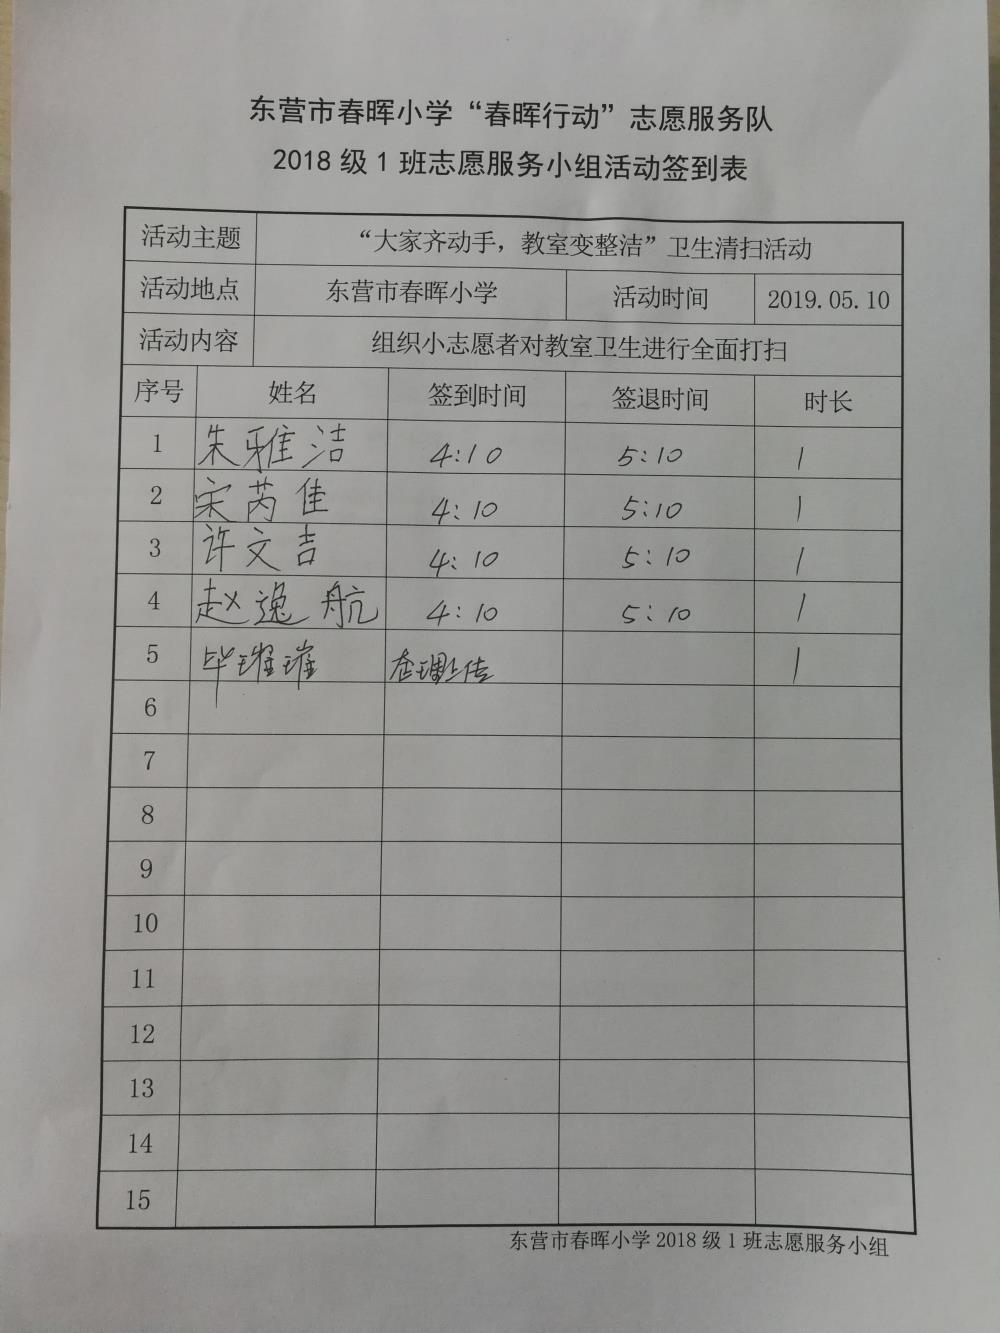 东营市春晖小学“春晖行动”志愿服务队
2018 级 1 班志愿服务小组活动签到表
活动主题 “大家齐动手，教室变整洁”卫生清扫活动
活动地点 东营市春晖小学 活动时间 2019.05.10
活动内容 组织小志愿者对教室卫生进行全面打扫
序号 姓名 签到时间 签退时间 时长
1 朱雅洁 4:10 5:10 1
2 宋芮佳 4:10 5:10 1
3 许文吉 4:10 5:10 1
4 赵逸航 4:10 5:10 1
5 毕璀璀 上传 1
6
7
8
9
10
11
12
13
14
15
东营市春晖小学 2018 级 1 班志愿服务小组